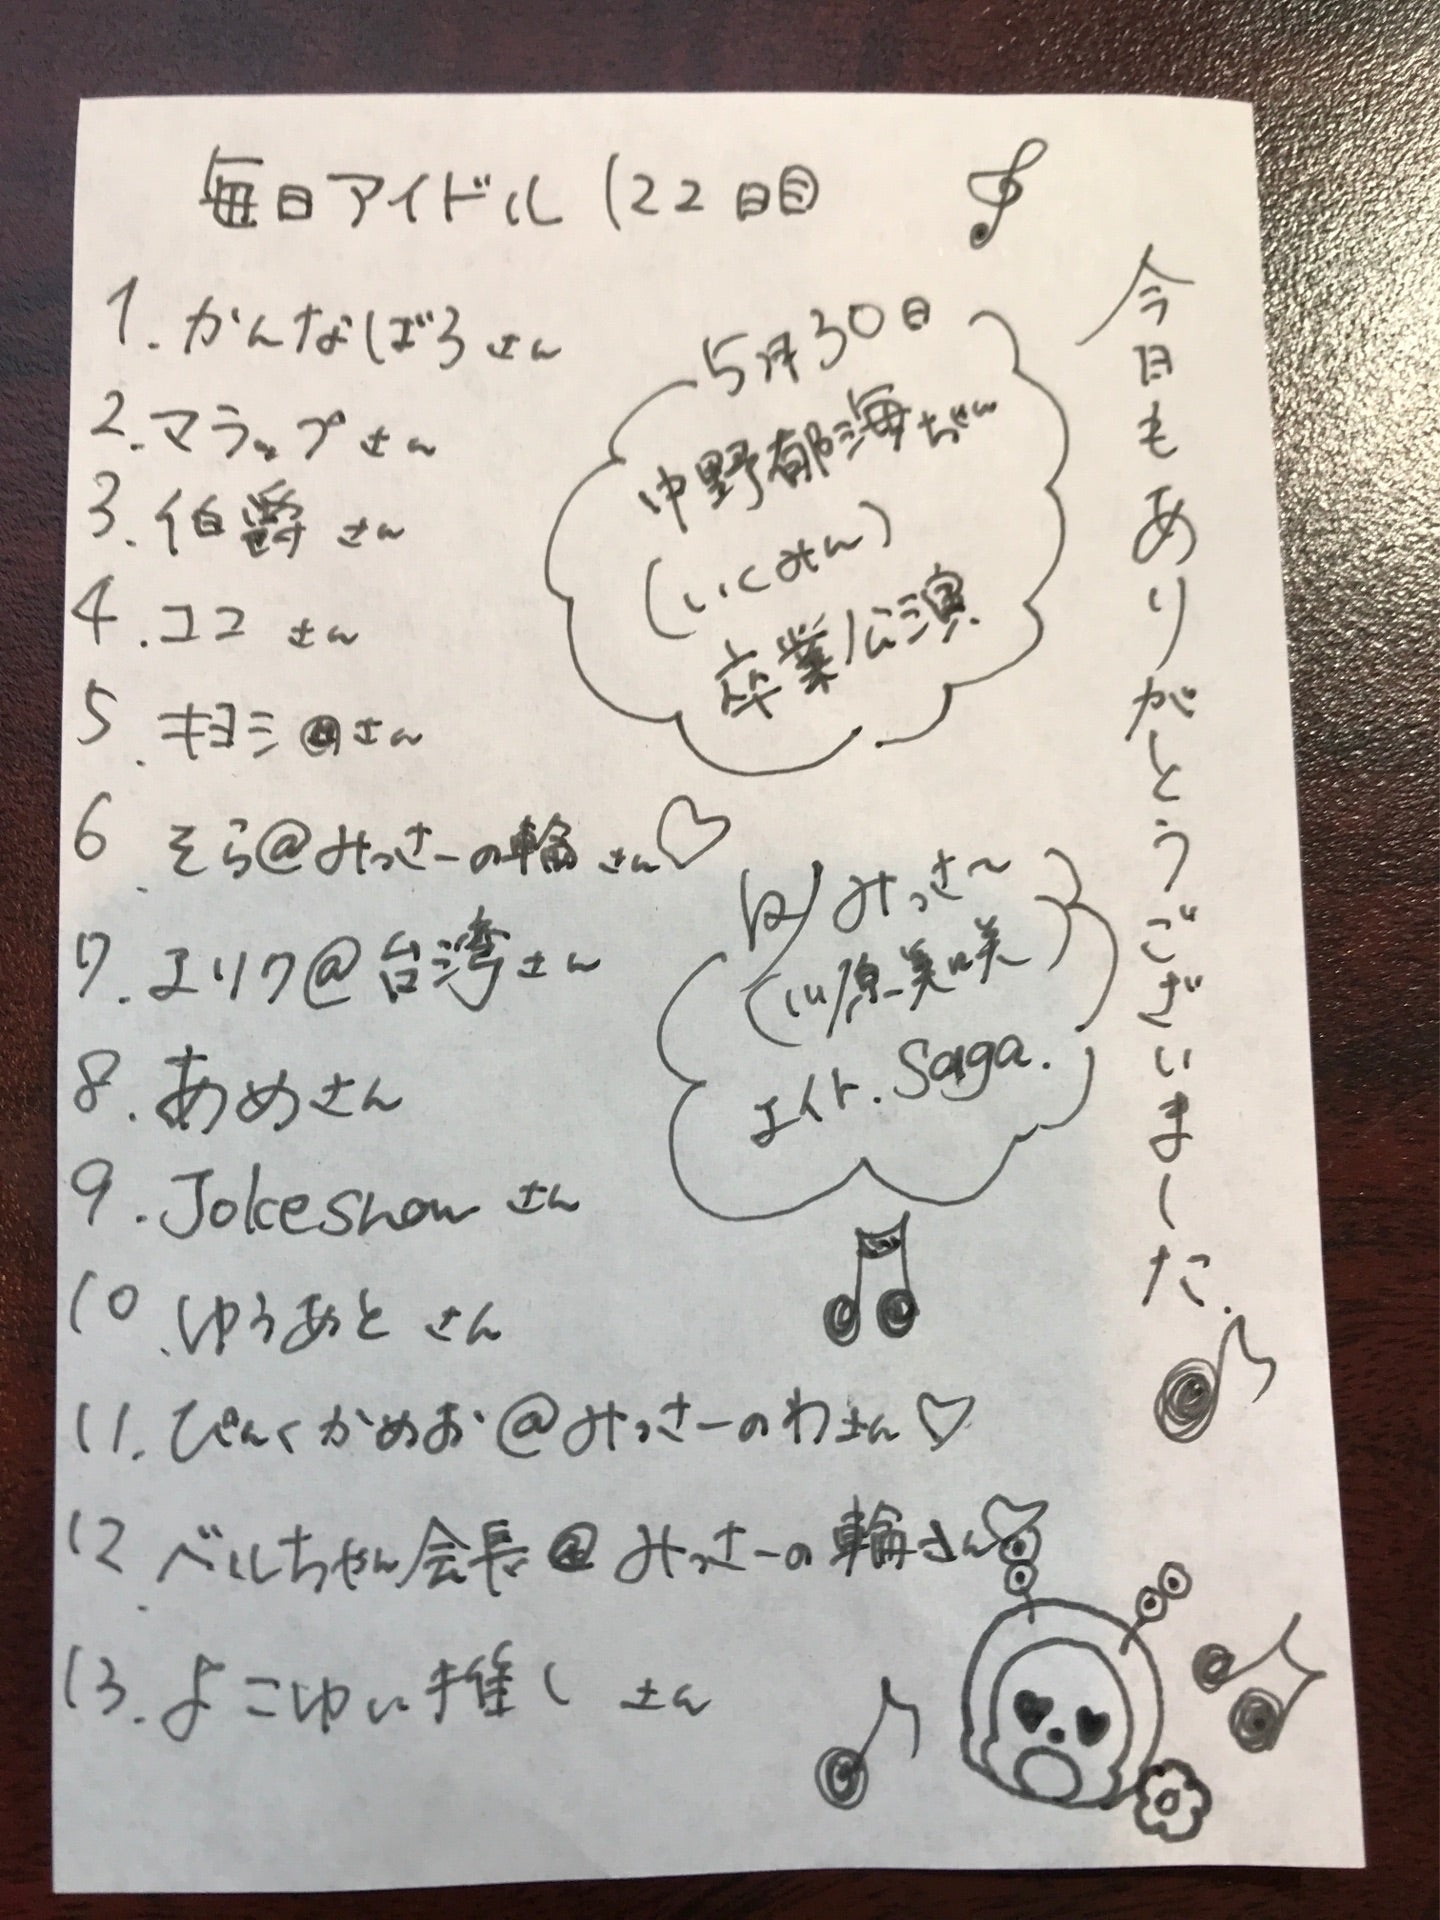 毎日アイドル 122日目
1. かんなぼろさん
2. マラップさん
3. 伯爵さん
4. ココさん
5. キヨシ@さん
6. そら@みっさーの輪さん♡
7. エリク@台湾さん
8. あめさん
9. Jokeshowさん
10. ゆうあとさん
11. ぴんくかめお@みっさーのわさん♡
12. ベルちゃん会長@みっさーの輪さん♡
13. よこゆい推しさん
5月30日
中野郁海ちゃん
(いくみん)
卒業公演
みっさ〜
(川原美咲)
エイト.Saga.
今日もありがとうございました.